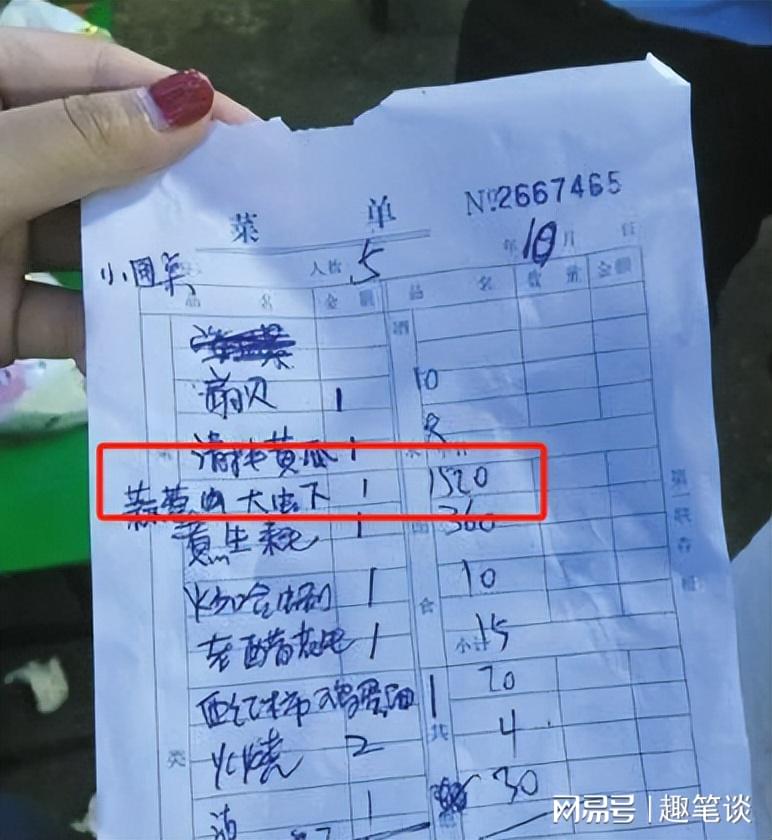 №2667465
菜 单
年 10 月 日
小圆桌 人数 5
品 名 金 额 品 名 数 量 金额
酒
扇贝 1 10
清拌黄瓜 1 8
蒜蓉 大虫下 1 1520
煮生耗 1 360
火勺合虫利 1 10
老醋花 1 15
小计
西红柿鸡蛋汤 1 20
火烧 2 4
酒 1 30
类
合
共
第一联存根
网易号 | 趣笔谈